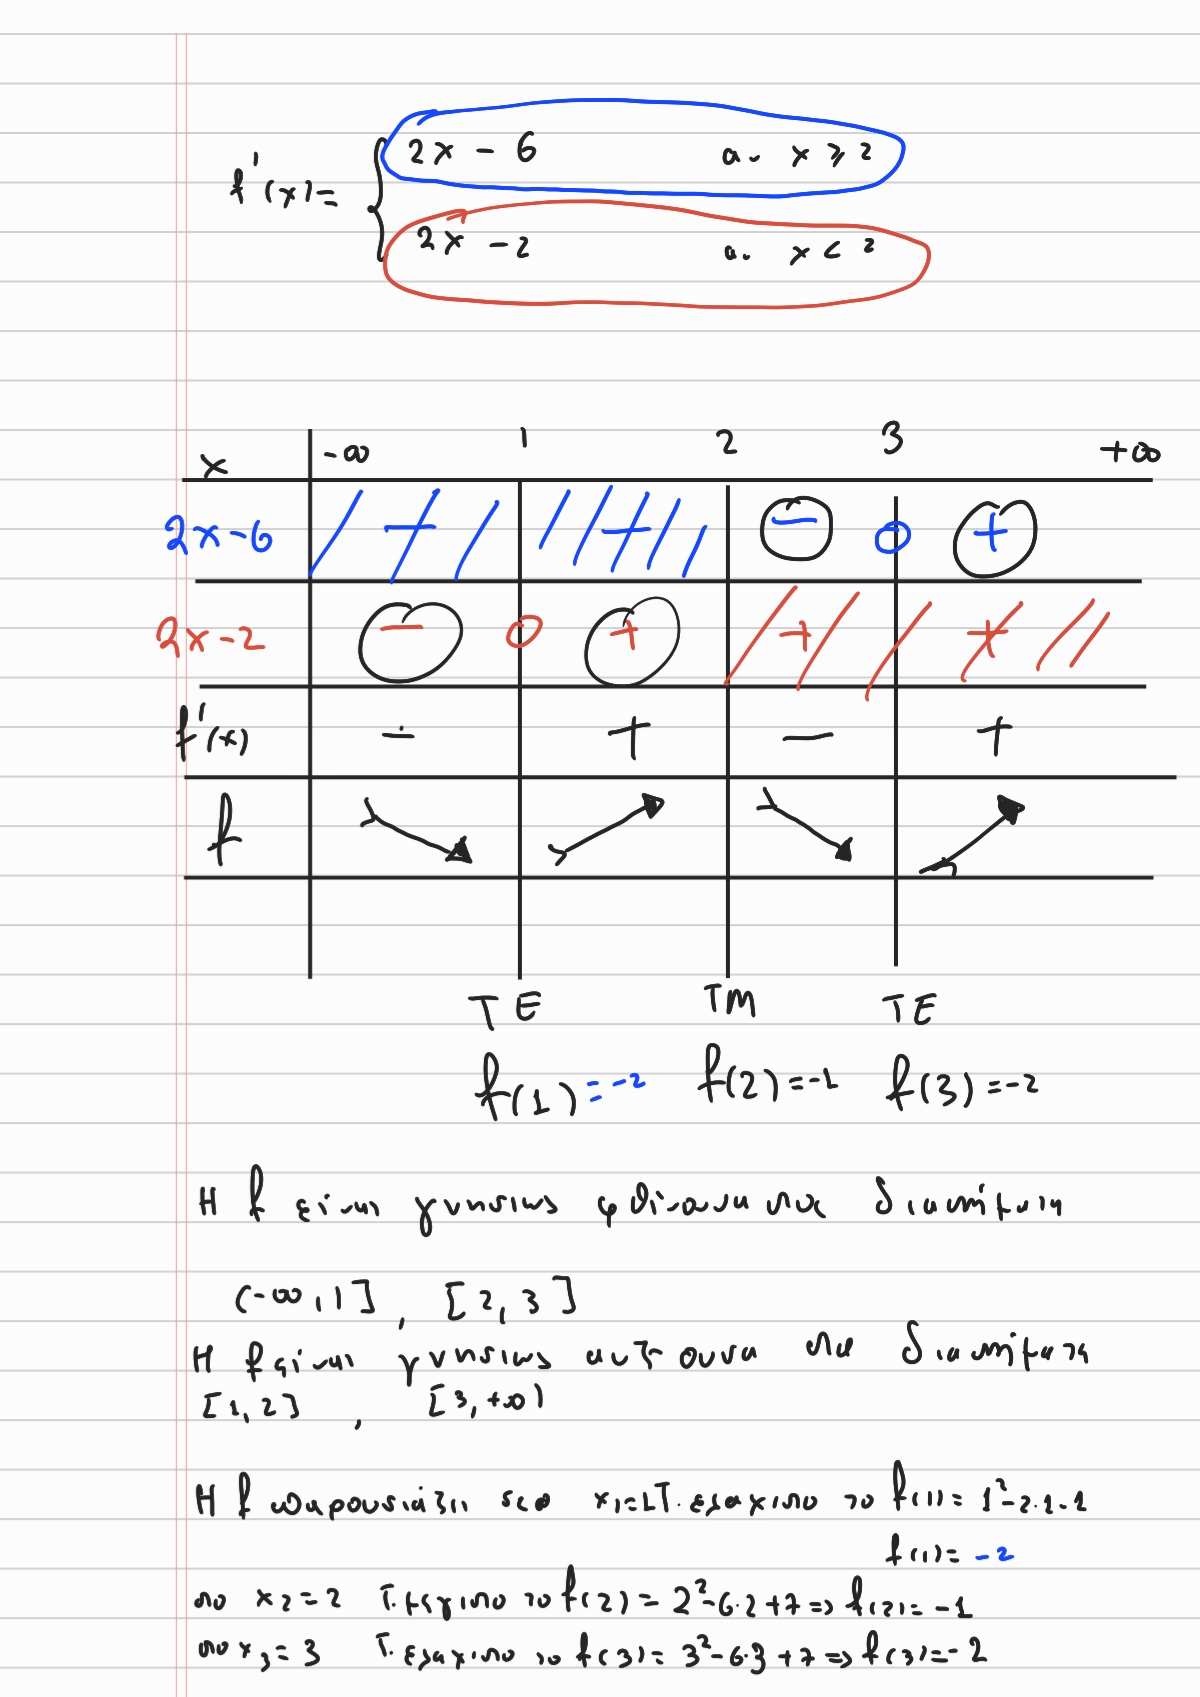 f'(x) = { 2x - 6 αν x ≥ 2
2x - 2 αν x < 2
x -∞ 1 2 3 +∞
2x-6 + + - 0 +
2x-2 - 0 + + +
f'(x) - + - +
f
TE TM TE
f(1) = -2 f(2) = -1 f(3) = -2
Η f είναι γνησίως φθίνουσα στα διαστήματα
(-∞, 1] , [2, 3]
Η f είναι γνησίως αύξουσα στα διαστήματα
[1, 2] , [3, +∞)
Η f παρουσιάζει στο x₁=1 Τ. ελάχιστο το f(1) = 1²-2·1-1
f(1) = -2
στο x₂ = 2 Τ. μέγιστο το f(2) = 2²-6·2+7 => f(2) = -1
στο x₃ = 3 Τ. ελάχιστο το f(3) = 3²-6·3+7 => f(3) = -2